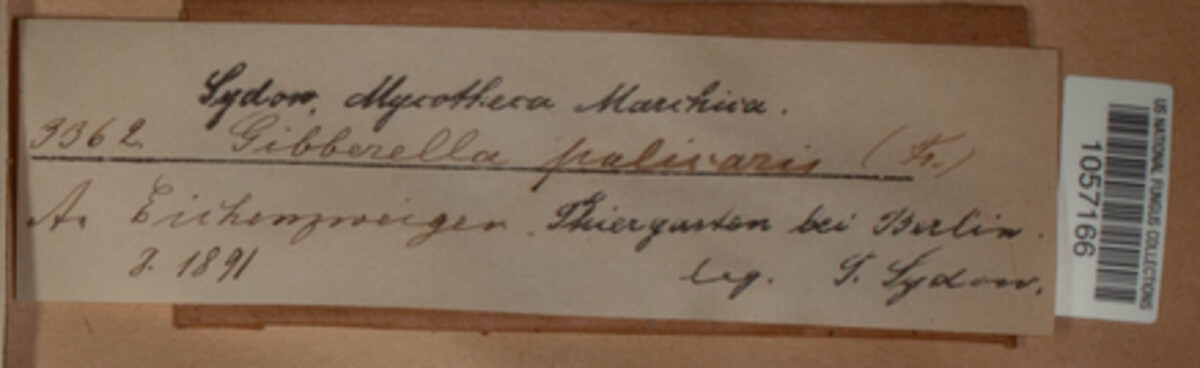 Sydow, Mycotheca Marchica.
3362. Gibberella pulicaris (Fr.)
An Eichenzweigen. Thiergarten bei Berlin.
3. 1891
leg. P. Sydow.
US NATIONAL FUNGUS COLLECTIONS
1057166